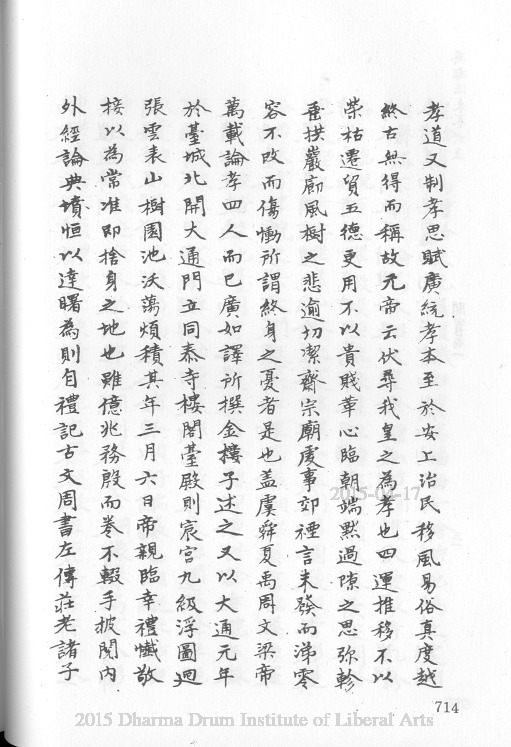 孝道又制孝思賦廣統孝本至於安上治民移風易俗真度越
終古無得而稱故元帝云伏尋我皇之為孝也四運推移不以
榮枯遷貿五德更用不以貴賤革心臨朝端默過隙之思弥軫
垂拱巖廊風樹之悲逾切潔齋宗廟虔事郊禋言未發而涕零
容不改而傷慟所謂終身之憂者是也盖虞舜夏禹周文梁帝
萬載論孝四人而已廣如譯所撰金樓子述之又以大通元年
於臺城北開大通門立同泰寺樓閣臺殿則宸宮九級浮圖迴
張雲表山樹園池沃蕩煩積其年三月六日帝親臨幸禮懺敬
接以為常准即捨身之地也雖億兆務殷而卷不輟手披閱内
外經論典墳恒以達曙為則自禮記古文周書左傳莊老諸子
714
2015-04-17
2015 Dharma Drum Institute of Liberal Arts